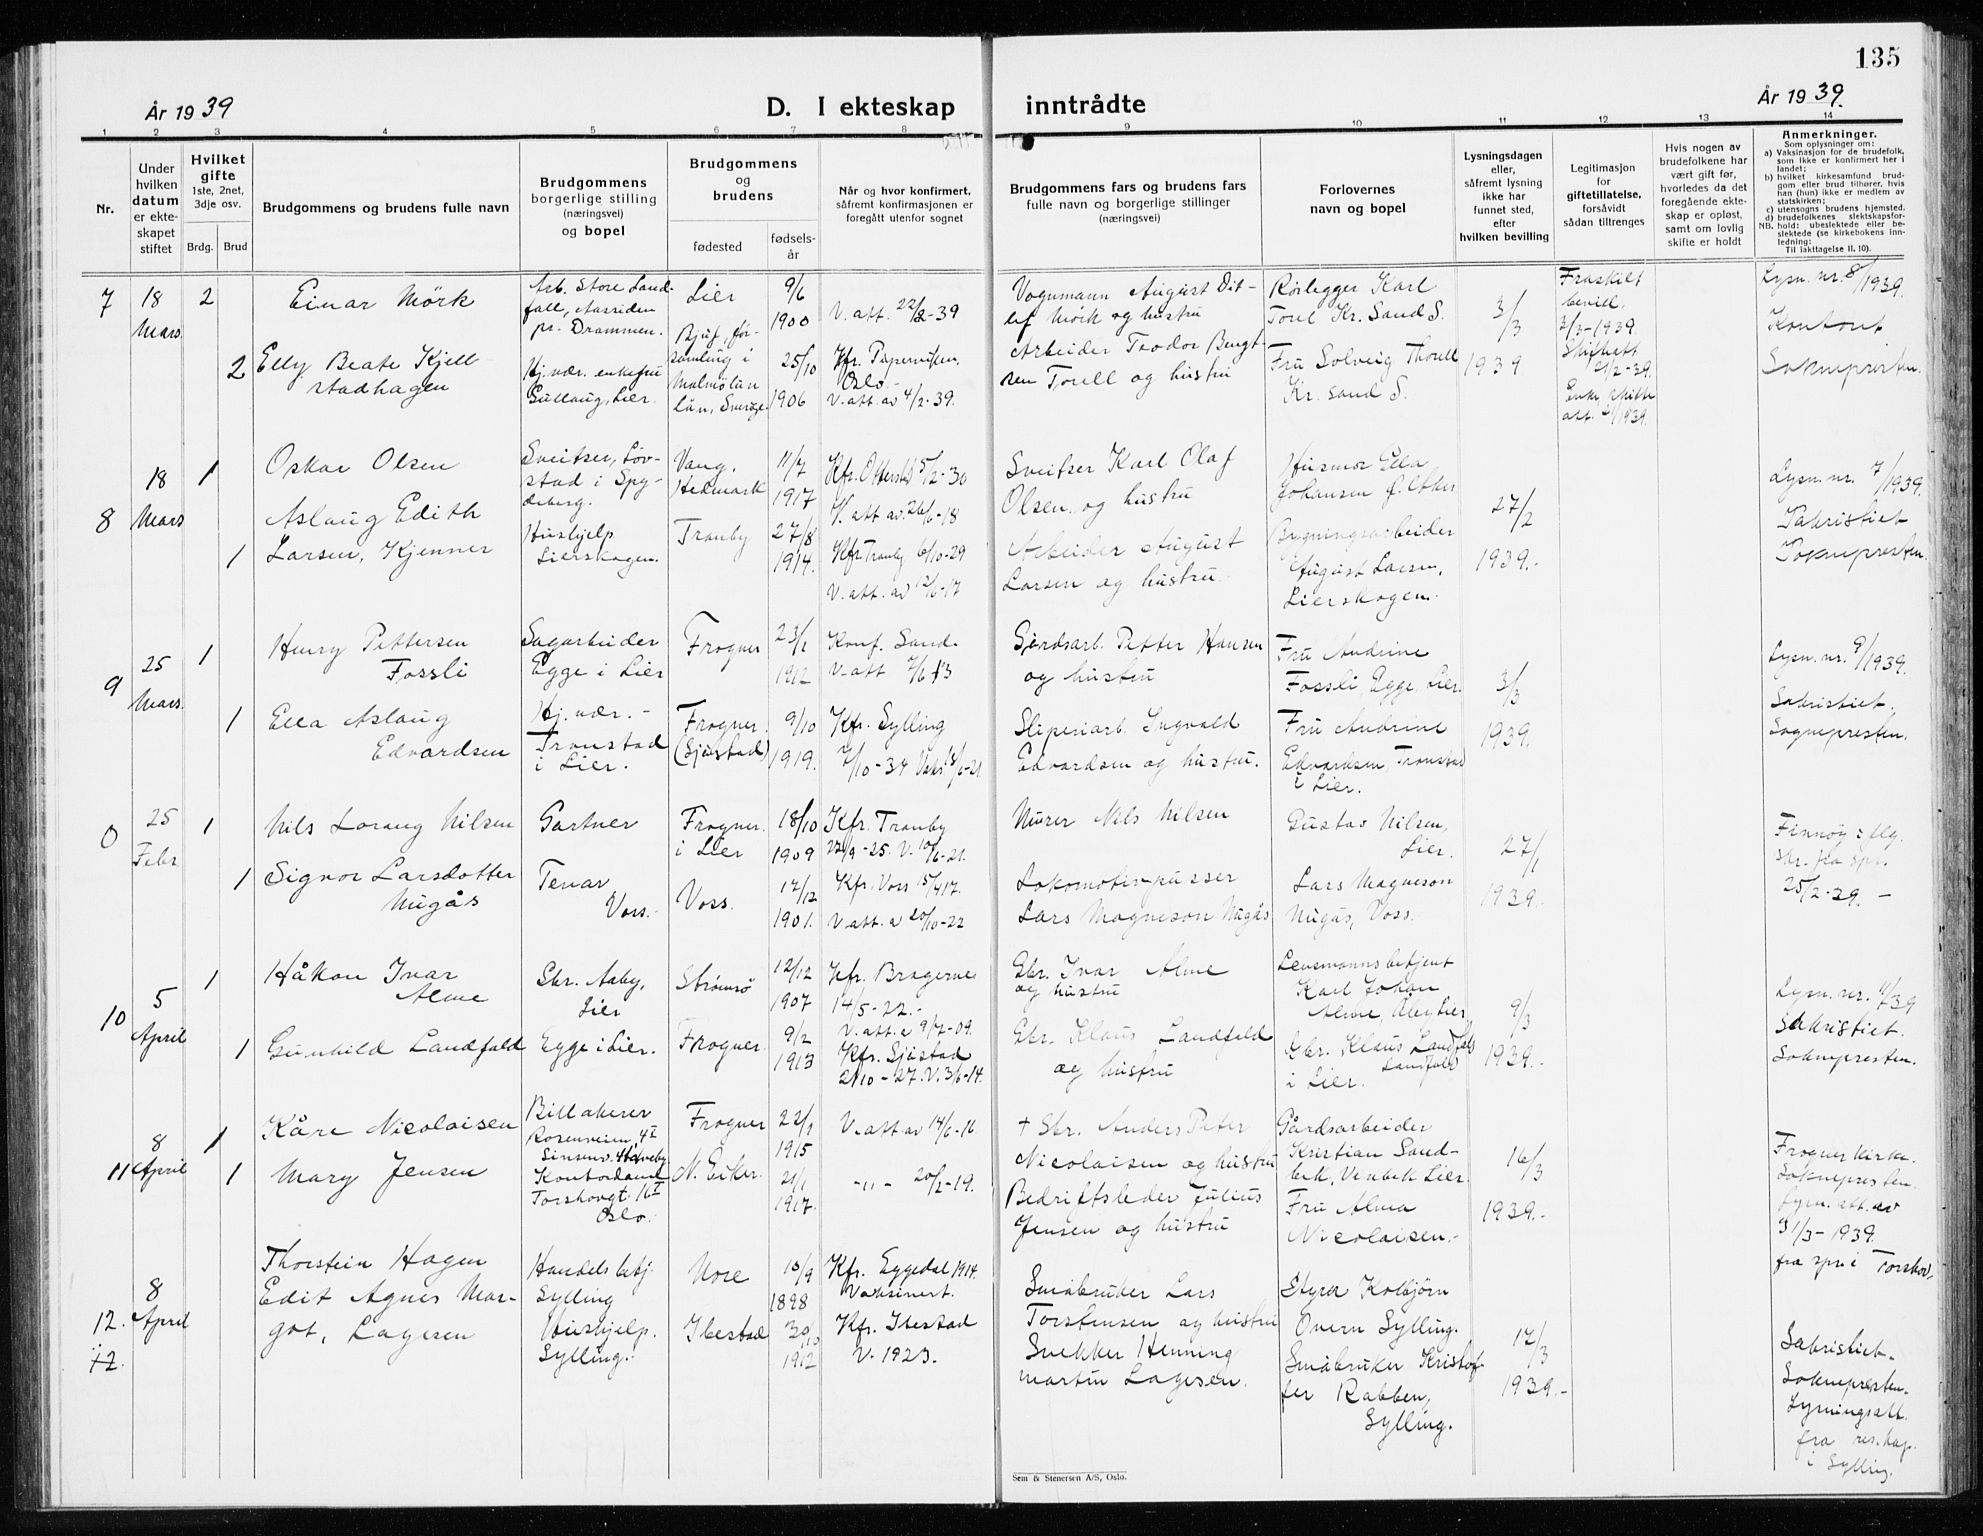 135
År 1939
D. I ekteskap inntrådte
År 1939.
1 2 3 4 5 6 7 8 9 10 11 12 13 14
Nr.
Under hvilken datum er ekteskapet stiftet
Hvilket gifte
1ste, 2net, 3dje osv.
Brdg. Brud
Brudgommens og brudens fulle navn
Brudgommens borgerlige stilling (næringsvei) og bopel
Brudgommens og brudens
fødested
fødsels-år
Når og hvor konfirmert, såfremt konfirmasjonen er foregått utenfor sognet
Brudgommens fars og brudens fars fulle navn og borgerlige stillinger (næringsvei)
Forlovernes navn og bopel
Lysningsdagen eller, såfremt lysning ikke har funnet sted, efter hvilken bevilling
Legitimasjon for giftetillatelse, forsåvidt sådan tiltrenges
Hvis nogen av brudefolkene har vært gift før, hvorledes da det foregående ekteskap er opløst, samt om lovlig skifte er holdt
Anmerkninger.
Som oplysning om:
a) Vaksinasjon for de brudefolk, som ikke er konfirmert her i landet;
b) hvilket kirkesamfund brudgom eller brud tilhører, hvis han (hun) ikke er medlem av statskirken;
c) utensogns brudens hjemsted.
d) brudefolkenes slektskapsforhold: ubeslektede eller beslektede (se kirkebokens innledning:
NB. Til iakttagelse II. 10).
7
18 Mars
2
Einar Mörk
Arb. Store Landfall, Aassiden pr. Drammen.
Lier
9/6 1900
V. att. 22/2-39
Vognmann August Ditlef Mörk og hustru
Rörlegger Karl Torel Kr. Sand S.
3/3 1939
Fraskilt bevill. 2/3-1939.
Lysn. nr. 8/1939.
Kontoret
Soknepresten.
2
Elly Beate Kjellstadhagen
Hj. vær. enkefru Gullaug, Lier.
25/10 1906
Oslo.
V. att. av 4/2-39.
Arbeider Teodor Bengtsen Torell og hustru
Fru Solveig Thorell Kr. sand S.
8
18 Mars
1
Oskar Olsen
Sveitser, Løvstad i Spydeberg.
Vang, Hedmark
11/7 1917
Kfr. Otterstad 5/2-30
V. att av. 26/6-18
Sveitser Karl Olaf Olsen og hustru
Husmor Ella Johansen
27/2 1939.-
Lysn. nr. 7/1939.
Sakristiet
Soknepresten.
1
Aslaug Edith Larsen, Kjenner
Hushjelp Lierskogen.
Tranby
27/8 1914.
Kfr. Tranby 6/10-29
V. att. av 12/6-17
Arbeider August Larsen og hustru
Bygningsarbeider August Larsen, Lierskogen.
9
25 Mars.
1
Henry Pettersen Fossli
Sagarbeider Egge i Lier
Frogner
23/1 1912
Konf. Sand.
V. att 7/6 13
Gårdsarb. Petter Hansen og hustru
Fru Andrine Fossli, Egge, Lier.
3/3 1939.
Lysn. nr. 9/1939.
Sakristiet.
Sognepresten.
1
Ella Aslaug Edvardsen
Hj. vær. - Tronstad i Lier.
Frogner (Sjåstad)
9/10 1919.
Kfr. Sylling 7/10-34
Sliperiarb. Ingvald Edvardsen og hustru.
Fru Andrine Edvardsen, Tronstad i Lier.
0
25 Febr
1
Nils Lorang Nilsen
Gartner
Frogner i Lier
18/10 1909
Kfr. Tranby 27/9-25. V. 10/6-21.
Murer Nils Nilsen
Gustav Nilsen, Lier.
27/1 1939.-
Finnøy i flg. skr. fra spr. 25/2-39. -
1
Signor Larsdotter Nugås
Tenar Voss.
Voss.
17/12 1901.
Kfr. Voss 15/4 17.
V. att. a 20/10-22
Lokomotivpusser Lars Magneson Nugås
Lars Magneson Nugås, Voss.
10
5 April
1
Håkon Ivar Alme
Gbr. Aaby, Lier
Strømsø
12/12 1907
Kfr. Bragernes 14/5-22.-
V. att. a 9/7-09.
Gbr. Ivar Alme og hustru
Lensmannsbetjent Karl Johan Alme, Åby Lier
9/3 1939.-
Lysn. nr. 11/39
Sakristiet.
Soknepresten.
1
Gunhild Landfald
Egge i Lier.
Frogner
9/2 1913
Kfr. Sjåstad 2/10-27. V. 3/6-14.
Gbr. Klaus Landfald og hustru
Gbr. Klaus Landfald i Lier.
11
8 April
1
Kåre Nicolaisen
Billakerer Rosenveien, 4 I
Frogner
22/9 1915
V. att av 14/6-16.
+ Gbr. Anders Peter Nicolaisen og hustru
Gårdsarbeider Kristian Sandbek, Lier.
16/3 1939.-
Frogner kirke.
Soknepresten.
Lysn. att. av 31/3-1939.
fra spr i Torshov,
1
Mary Jensen
Kontordame Torshovgt. 16 I Oslo.
N. Eiker.
21/1 1917.
-"- 20/2-19.
Bedriftsleder Julius Jensen og hustru
Fru Alma Nicolaisen.-
12.
8 April
Thorstein Hagen
Handelsbetj. Sylling
Nore
10/9 1898
Kfr. Eggedal 1914.
Vaksinert.
Småbruker Lars Torstensen og hustru
Styrer Kolbjörn Overn Sylling.
17/3 1939.-
Sakristiet.
Soknepresten.
Lysningsatt. fra res.kap. i Sylling.
12
Edit Agnes Margot, Lagesen
Hushjelp. Sylling.
Ibestad
30/10 1912
Kfr. Ibestad
V. 1923.
Snekker Henning Martin Lagesen.
Småbruker Kristoffer Rabben, Sylling.
Sem & Stenersen A/S, Oslo.